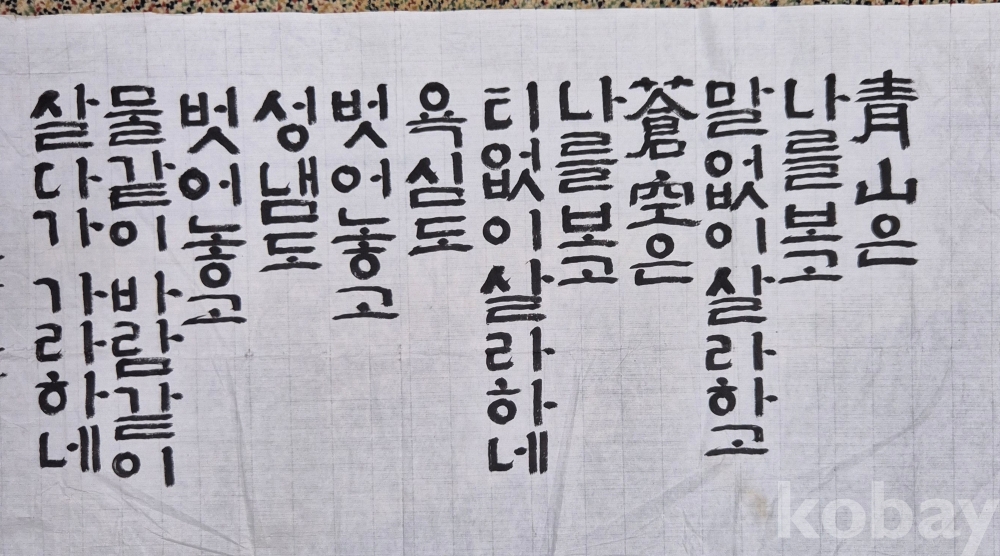 靑山은
나를 보고
말없이 살라하고
蒼空은
나를 보고
티없이 살라하네
욕심도
벗어놓고
성냄도
벗어놓고
물같이 바람같이
살다가 가라하네
kobay